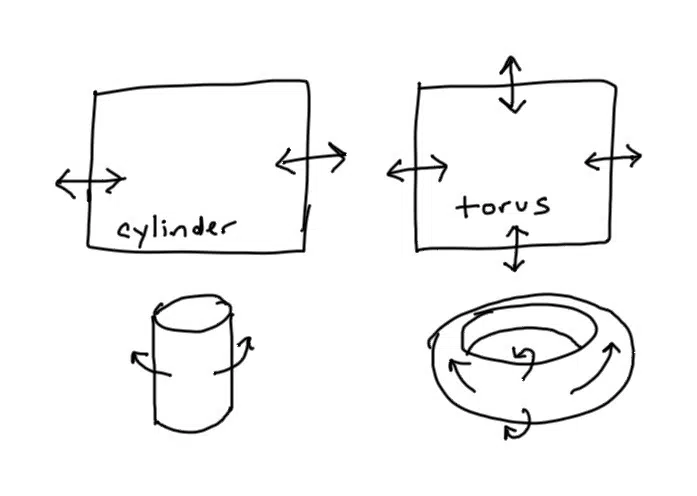 cylinder
torus